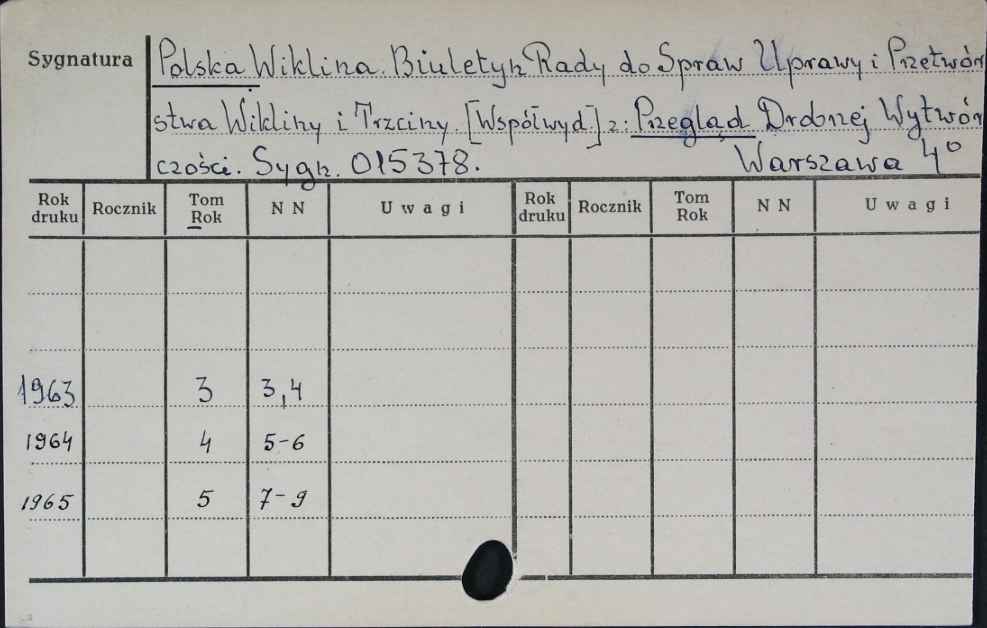 Sygnatura
Polska Wiklina. Biuletyn Rady do Spraw Uprawy i Przetwór
stwa Wikliny i Trzciny. [Współwyd] z: Przegląd Drobnej Wytwór
czości. Sygn. 015378. Warszawa 4°
Rok druku Rocznik Tom Rok N N Uwagi Rok druku Rocznik Tom Rok N N Uwagi
1963 3 3,4
1964 4 5-6
1965 5 7-9